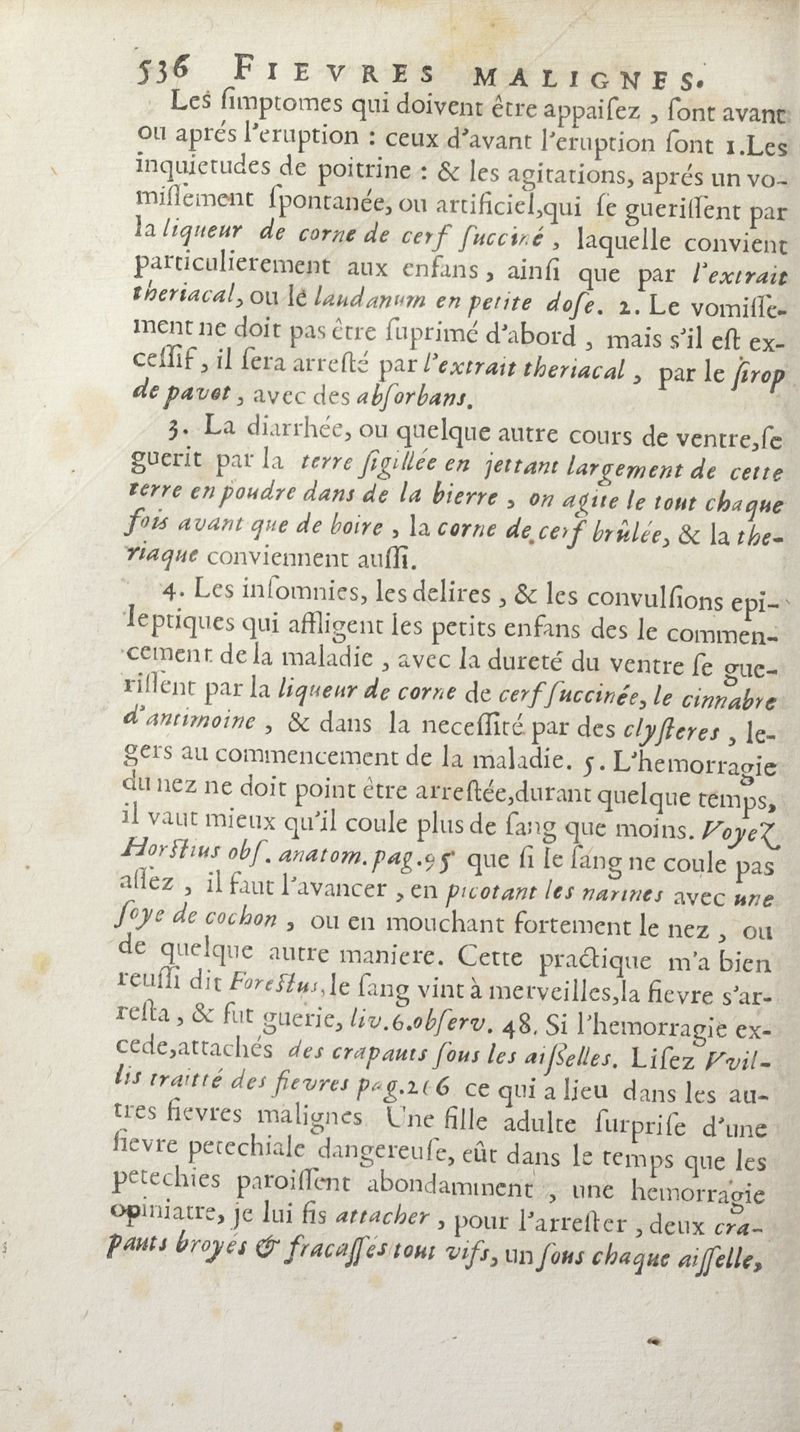 536 FIEVRES MALIGNES.
Les ſimptomes qui doivent être appaiſez , ſont avant
ou aprés l'eruption : ceux d'avant l'eruption ſont 1.Les
inquietudes de poitrine : & les agitations, aprés un vo-
miſſement ſpontanée, ou artificiel,qui ſe gueriſſent par
la liqueur de corne de cerf ſucciné , laquelle convient
particulierement aux enfans , ainſi que par l'extrait
theriacal, ou le laudanum en petite doſe. 2. Le vomiſſe-
ment ne doit pas être ſuprimé d'abord , mais s'il eſt ex-
ceſſif , il ſera arreſté par l'extrait theriacal , par le ſirop
de pavot , avec des abſorbans.
3. La diarrhée, ou quelque autre cours de ventre,ſe
guerit par la terre ſigillée en jettant largement de cette
terre en poudre dans de la bierre , on agite le tout chaque
fois avant que de boire , la corne de cerf brûlée, & la the-
riaque conviennent auſſi.
4. Les inſomnies, les delires , & les convulſions epi-
leptiques qui affligent les petits enfans des le commen-
cement de la maladie , avec la dureté du ventre ſe gue-
riſſent par la liqueur de corne de cerf ſuccinée, le cinnabre
d'antimoine , & dans la neceſſité par des clyſteres , le-
gers au commencement de la maladie. 5. L'hemorragie
du nez ne doit point être arreſtée,durant quelque temps,
il vaut mieux qu'il coule plus de ſang que moins. Voyez
Horſtius obſ. anatom. pag.95 que ſi le ſang ne coule pas
aſſez , il faut l'avancer , en picotant les narines avec une
ſoye de cochon , ou en mouchant fortement le nez , ou
de quelque autre maniere. Cette practique m'a bien
reuſſi dit Foreſtus,le ſang vint à merveilles,la fievre s'ar-
reſta , & fut guerie, liv.6.obſerv. 48. Si l'hemorragie ex-
cede,attachés des crapauts ſous les aiſſelles. Liſez Vvil-
lis traitté des fievres pag.216 ce qui a lieu dans les au-
tres fievres malignes Une fille adulte ſurpriſe d'une
fievre petechiale dangereuſe, eût dans le temps que les
petechies paroiſſent abondamment , une hemorragie
opiniatre, je lui fis attacher , pour l'arreſter , deux cra-
pauts broyés & fracaſſés tout vifs, un ſous chaque aiſſelle,